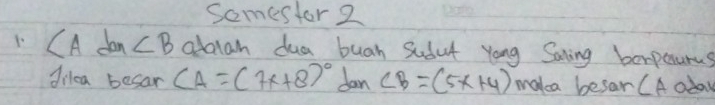 Semester 2
1. ∠A dan ∠B adalah dua buah sudut yang saling berpelurus
Jika besar ∠A = (7x+8)° dan ∠B = (5x+4) maka besar ∠A adal